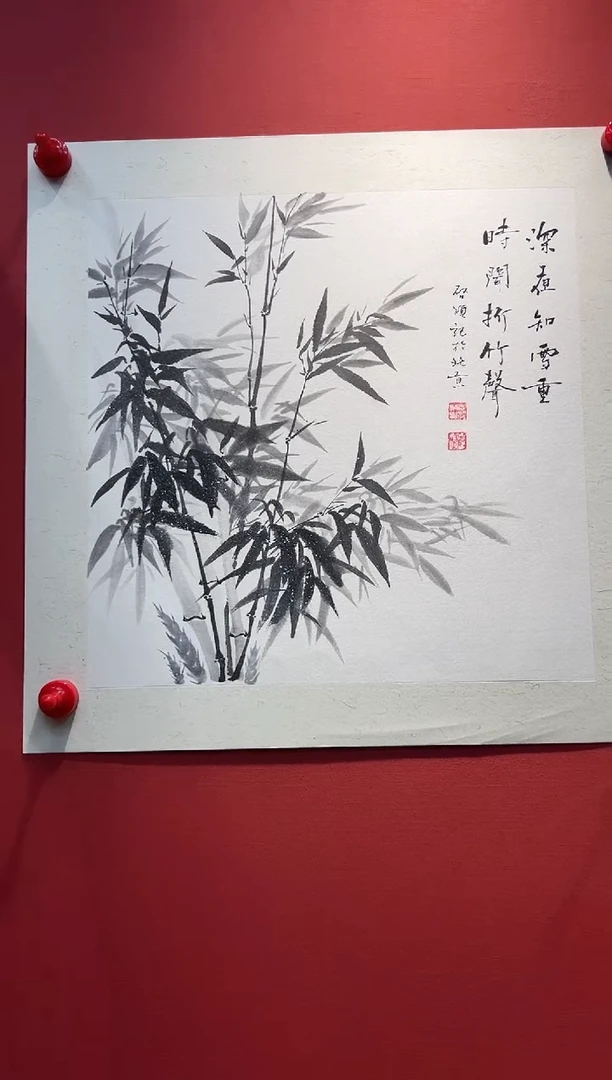 深夜知雪重
時聞折竹聲
記於北京